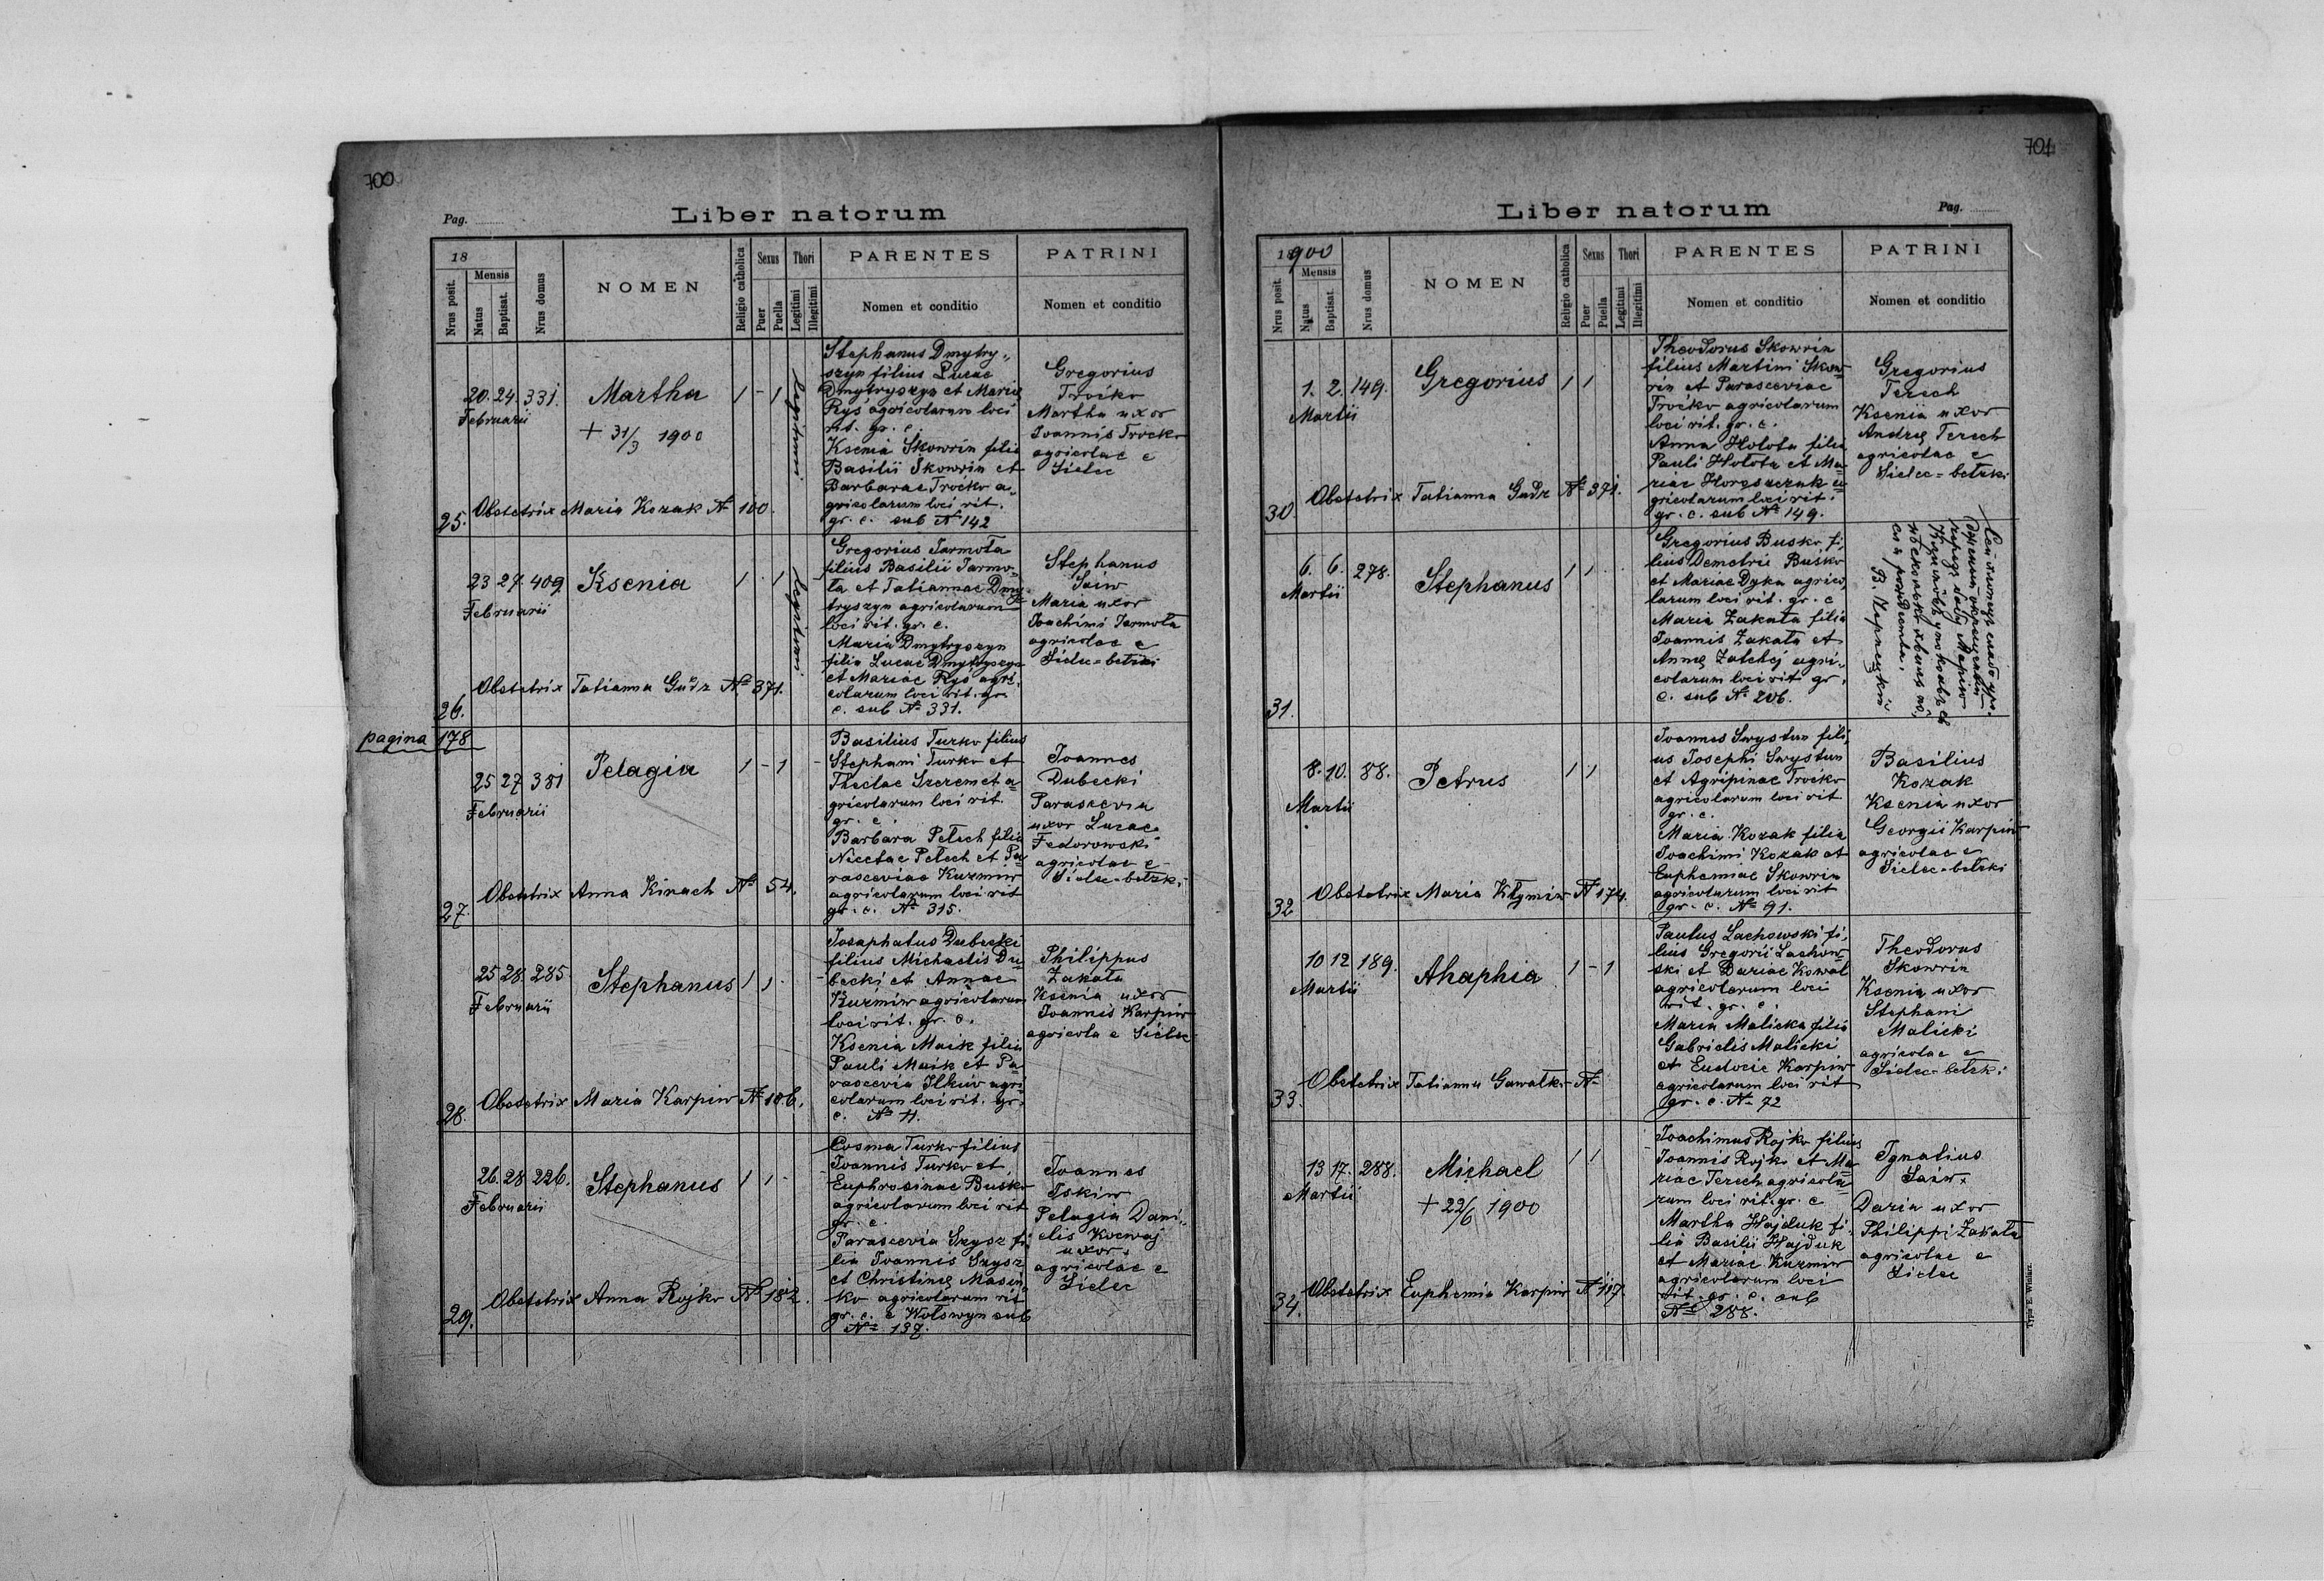 700
Pag.
Liber natorum
18
Nrus posit.
Mensis
Natus
Baptisat.
Nrus domus
NOMEN
Religio catholica
Sexus
Puer
Puella
Thori
Legitimi
Illegitimi
PARENTES
Nomen et conditio
PATRINI
Nomen et conditio
25.
20. 24. 331.
Februarii
Martha
+ 31/3 1900
1 - 1
Legitimi
Stephanus Dmytry„
szyn filius Lucae
Dmytryszyn et Marię
Rys agricolarum loci
rit. gr. c.
Ksenia Skowrin filia
Basilii Skowrin et
Barbarae Troćko a„
gricolarum loci rit.
gr. c. sub № 142
Gregorius
Troćko
Martha uxor
Ioannis Troćko
agricolae e
Sielec
Obstetrix Maria Kozak № 100.
26.
23 27. 409
Februarii
Ksenia
1 · 1
Legitimi
Gregorius Jarmoła
filius Basilii Jarmo„
ła et Tatiannae Dmy
tryszyn agricolarum
loci rit. gr. c.
Maria Dmytryszyn
filia Lucae Dmytryszyn
et Mariae Rys agri„
colarum loci rit. gr.
c. sub № 331.
Stephanus
Saiw
Maria uxor
Joachimi Jarmoła
agricolae e
Sielec=bełzki
Obstetrix Tatianna Gudz № 371.
pagina 178
27.
25 27 381
Februarii
Pelagia
1 - 1
Basilius Turko filius
Stephani Turko et
Theclae Szeremet a=
gricolarum loci rit.
gr. c.
Barbara Pełech filia
Nicetae Pełech et Pa=
rasceviae Kuzmiw
agricolarum loci rit
gr. c. № 315.
Joannes
Dubecki
Parascevia
uxor Lucae
Fedorowski
agricolae e
Sielec=bełzki
Obstetrix Anna Kinach № 54.
28.
25 28. 285
Februarii
Stephanus
1 1
Josaphatus Dubecki
filius Michaelis Du=
becki et Annae
Kuzmiw agricolarum
loci rit. gr. c.
Ksenia Maik filia
Pauli Maik et Pa=
rascevia Ilkiw agri
colarum loci rit. gr.
c. № 11.
Philippus
Zakała
Ksenia uxor
Joannis Karpiw
agricola e Sielec
Obstetrix Maria Karpiw № 186.
29.
26. 28 226.
Februarii
Stephanus
1 1 -
Cosma Turko filius
Joannis Turko et
Euphrosinae Busko
agricolarum loci rit
gr. c.
Parascevia Szysz fi
lia Joannis Szysz
et Christinę Masin
ko agricolarum rit
gr. c. e Wolswyn sub
№ 137.
Joannes
Iskiw
Pelagia Dani„
elis Kocwaj
uxor.
agricolae e
Sielec
Obstetrix Anna Rojko № 182.
701
Liber natorum
Pag.
1900
Nrus posit.
Mensis
Natus
Baptisat.
Nrus domus
NOMEN
Religio catholica
Sexus
Puer
Puella
Thori
Legitimi
Illegitimi
PARENTES
Nomen et conditio
PATRINI
Nomen et conditio
30.
1. 2. 149.
Martii
Gregorius
1 1
Theodorus Skowrin
filius Martini Skow=
rin et Parasceviae
Troćko agricolarum
loci rit. gr. c.
Anna Hołota filia
Pauli Hołota et Ma=
riae Horoszczuk a=
gricolarum loci rit.
gr. c. sub № 149.
Gregorius
Terech
Ksenia uxor
Andrę Terech
agricolae e
Sielec=bełzki
Obstetrix Tatianna Gudz № 371.
31.
6. 6. 278.
Martii
Stephanus
1 1
Gregorius Busko fi„
lius Demetrii Busko
et Mariae Dyka agrico„
larum loci rit. gr. c
Maria Zakała filia
Joannis Zakała et
Annę Zatchej agri„
colarum loci rit gr.
c. sub № 206.
В. Черпецкій
32
8. 10. 88.
Martii
Petrus
1 1
Joannes Swystun fili„
us Josephi Swystun
et Agripinae Troćko
agricolarum loci rit
gr. c.
Maria Kozak filia
Joachimi Kozak et
Euphemiae Skowrin
agricolarum loci rit
gr. c. № 91.
Basilius
Kozak
Ksenia uxor
Georgii Karpiw
agricolae e
Sielec=bełzki
Obstetrix Maria Kłymiw № 174.
33.
10 12 189.
Martii
Ahaphia
1 - 1
Paulus Lachowski fi„
lius Gregorii Lachow=
ski et Dariae Kowal
agricolarum loci
rit. gr. c.
Maria Malicka filia
Gabrielis Malicki
et Eudocie Karpiw
agricolarum loci rit
gr. c. № 72
Theodorus
Skowrin
Ksenia uxor
Stephani
Malicki
agricolae e
Sielec=bełzki
Obstetrix Tatianna Gawałko №
34.
13 17. 288.
Martii
Michael
+ 22/6 1900
1 1
Joachimus Rojko filius
Joannis Rojko et Ma=
riae Terech agricola=
rum loci rit. gr. c
Martha Hajduk fi„
lia Basilii Hajduk
et Mariae Kuzmiw
agricolarum loci
rit. gr. c. sub
№ 288.
Ignatius
Saiw.
Daria uxor
Philippi Zakała
agricolae e
Sielec
Obstetrix Euphemia Karpiw № 187.
Typis E. Winiarz.